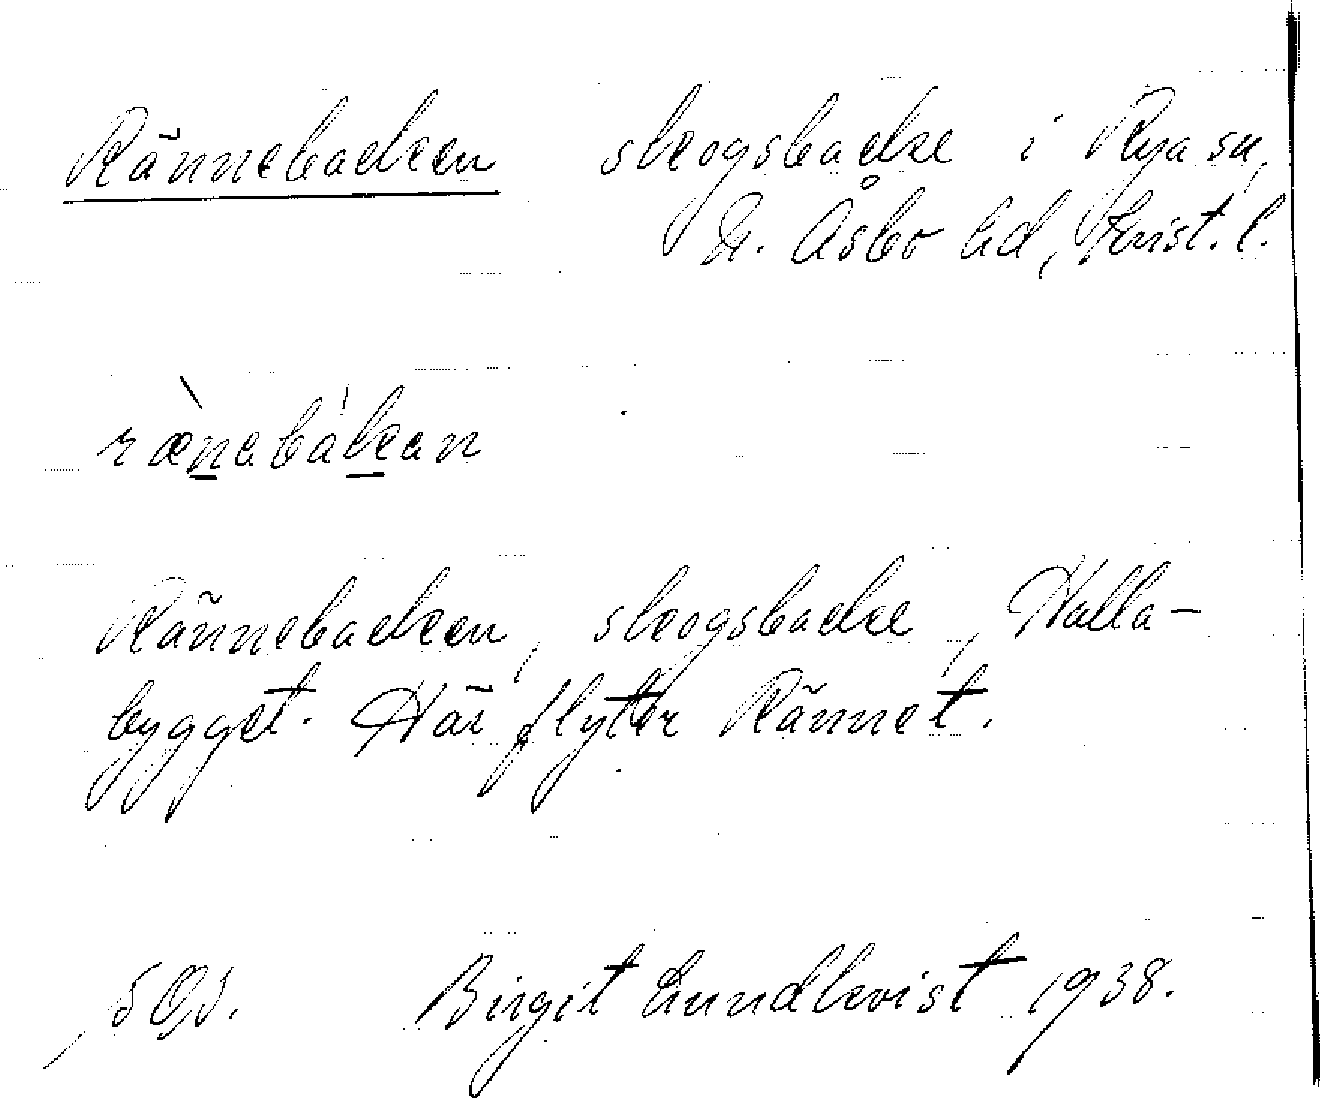 Rännebacken skogsbacke i Rya sn,
N. Åsbo hd, Krist. l.
rænebakan
Rännebacken, skogsbacke, Halla-
bygget. Här flyter Rännet.
Birgit Lundkvist 1938.